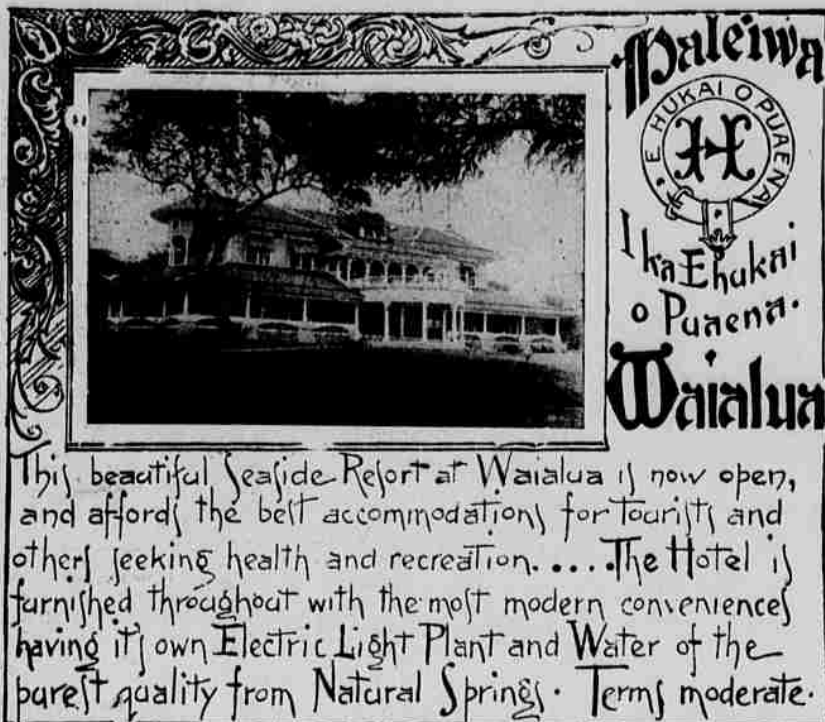 Haleiwa
E HUKAI O PUAENA
H
I ka Ehukai
o Puaena.
Waialua
This beautiful Seaside Resort at Waialua is now open,
and affords the best accommodations for tourists and
others seeking health and recreation. .... The Hotel is
furnished throughout with the most modern conveniences
having it's own Electric Light Plant and Water of the
purest quality from Natural Springs. Terms moderate.